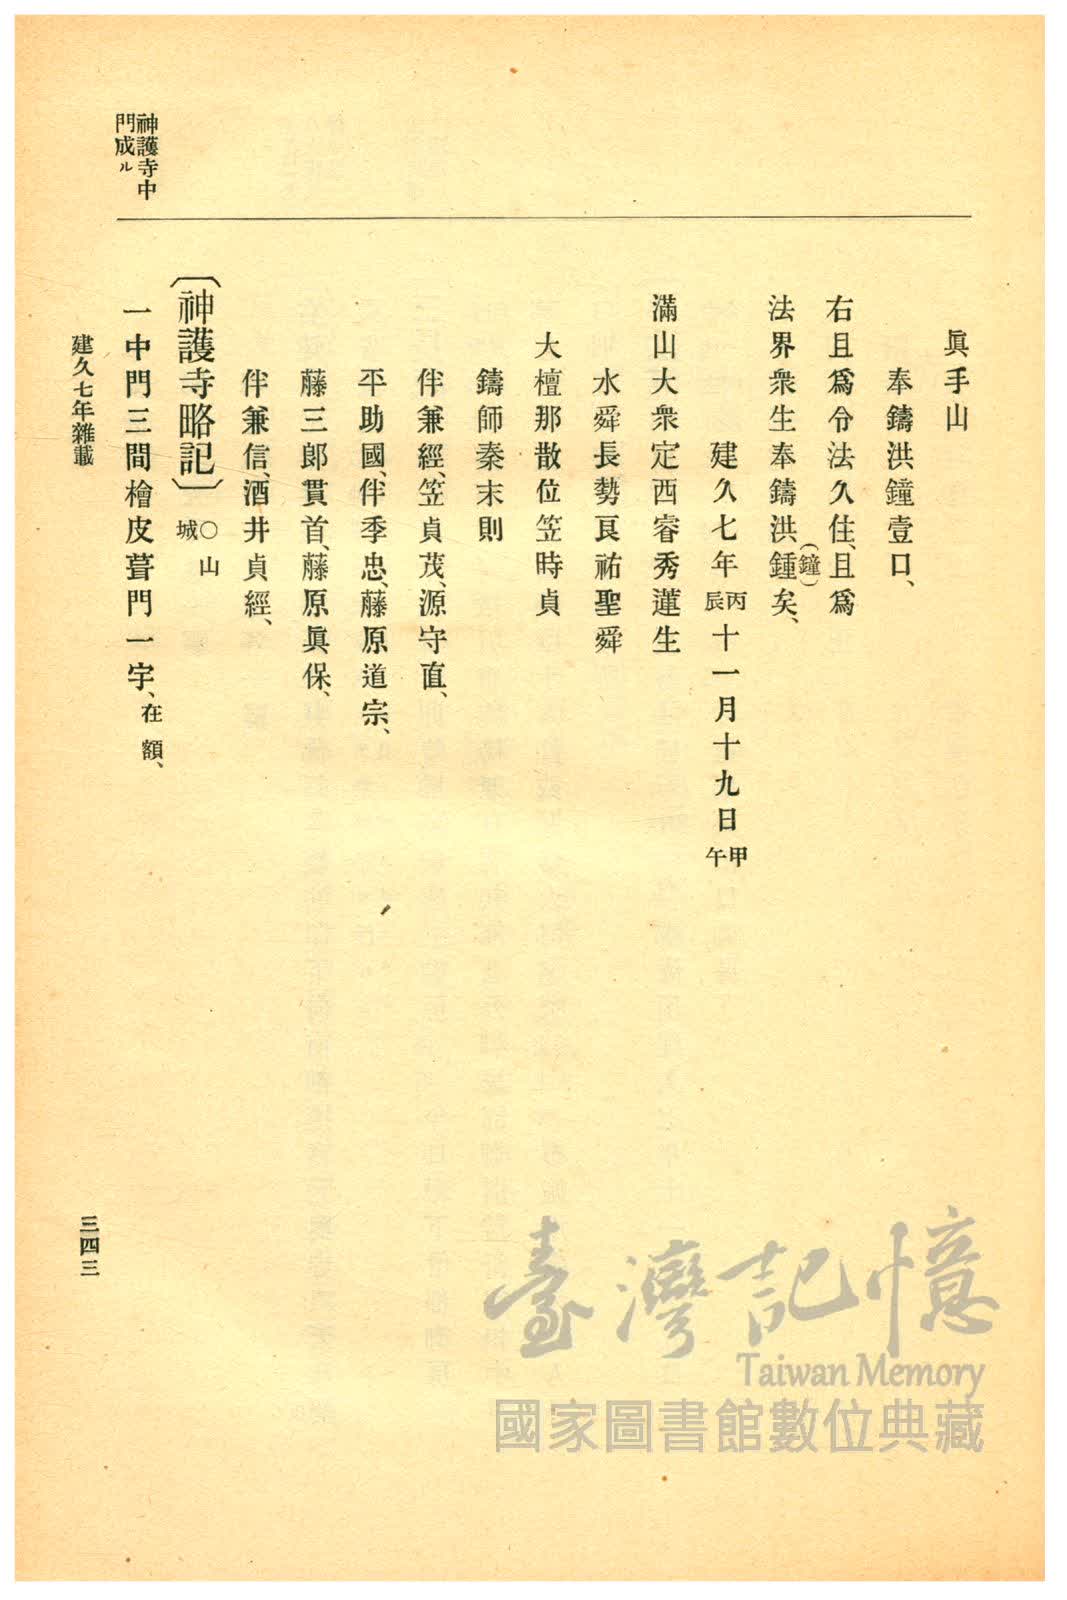 眞手山
奉鑄洪鐘壹口、
右且爲令法久住、且爲
法界衆生奉鑄洪鍾(鐘)矣、
建久七年丙辰十一月十九日甲午
滿山大衆定西睿秀蓮生
水舜長勢良祐聖舜
大檀那散位笠時貞
鑄師秦末則
伴兼經、笠貞茂、源守直、
平助國、伴季忠、藤原道宗、
藤三郎貫首、藤原眞保、
伴兼信、酒井貞經、
〔神護寺略記〕○山城
神護寺中
門成ル
一中門三間檜皮葺門一宇、在額、
建久七年雜載
三四三
臺灣記憶
Taiwan Memory
國家圖書館數位典藏